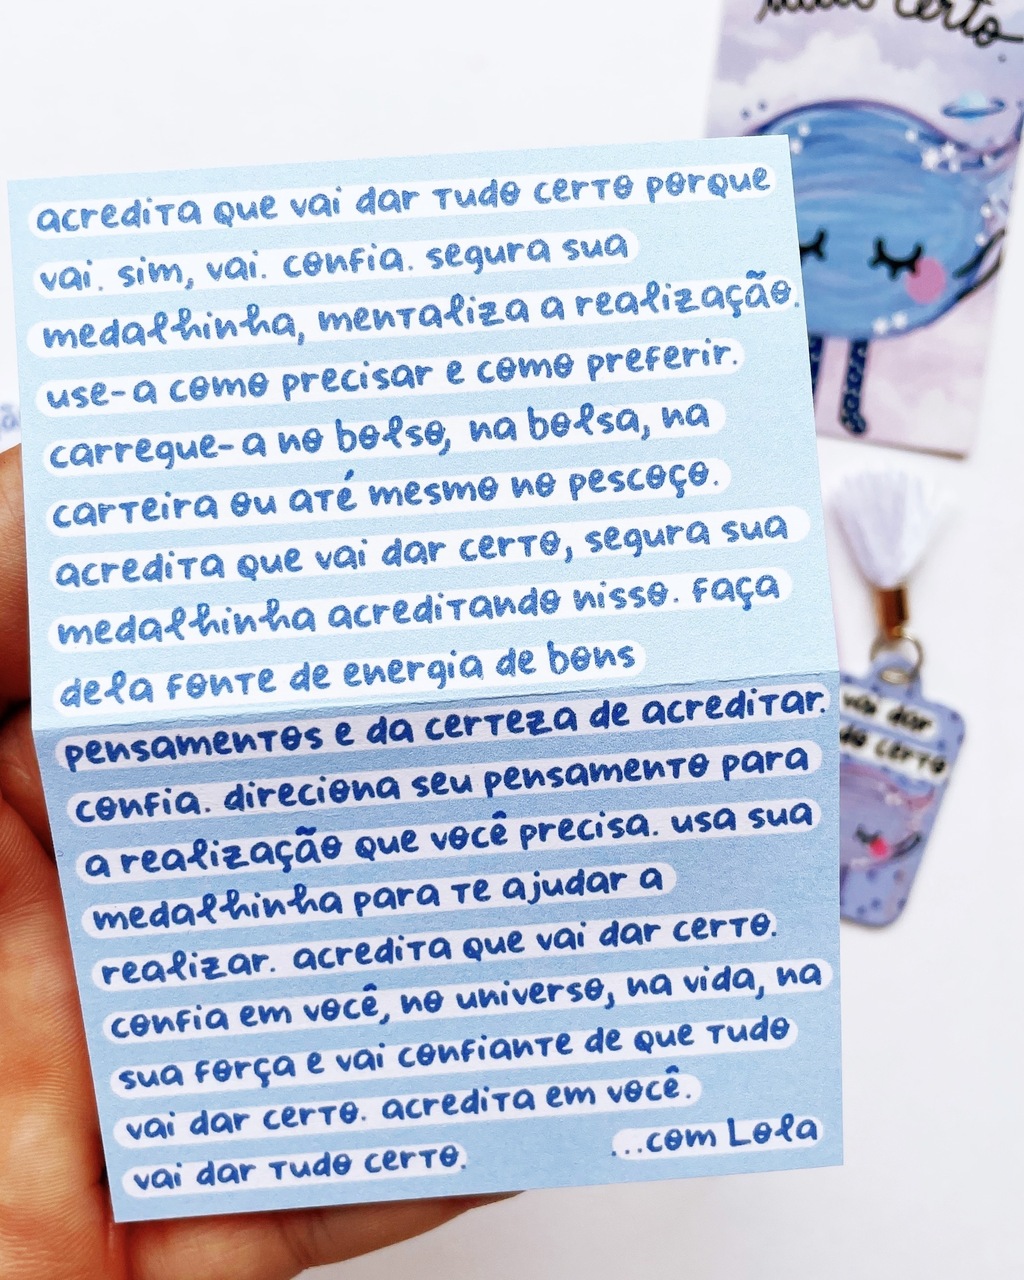 certo.
acredita que vai dar tudo certo porque
vai. sim, vai. confia. segura sua
medalhinha, mentaliza a realização.
use-a como precisar e como preferir.
carregue-a no bolso, na bolsa, na
carteira ou até mesmo no pescoço.
acredita que vai dar certo, segura sua
medalhinha acreditando nisso. faça
dela fonte de energia de bons
pensamentos e da certeza de acreditar.
confia. direciona seu pensamento para
a realização que você precisa. usa sua
medalhinha para te ajudar a
realizar. acredita que vai dar certo.
confia em você, no universo, na vida, na
sua força e vai confiante de que tudo
vai dar certo. acredita em você.
vai dar tudo certo.
...com Lola
vai dar
certo